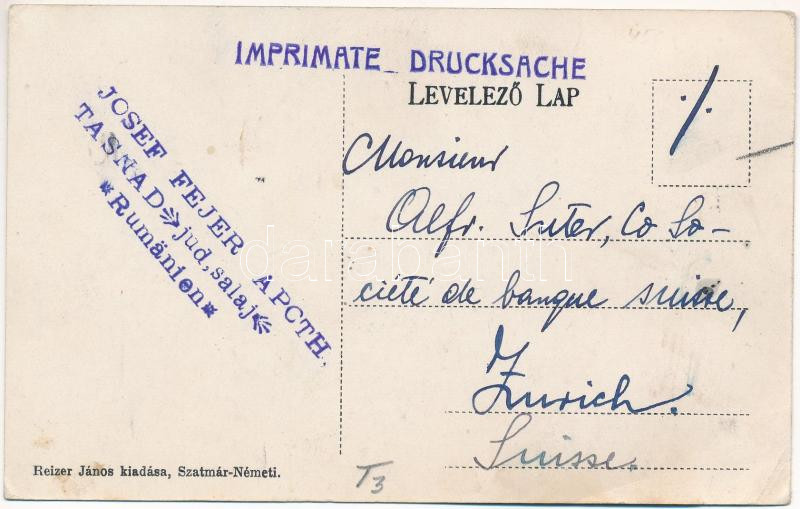 IMPRIMATE DRUCKSACHE
LEVELEZŐ LAP
JOSEF FEJER APCTH.
TASNAD jud, salaj
*Rumänien*
Monsieur
Alfr. Suter, Co So-
ciété de banque suisse,
Zurich.
Suisse.
darabanth
Reizer János kiadása, Szatmár-Németi.
T3